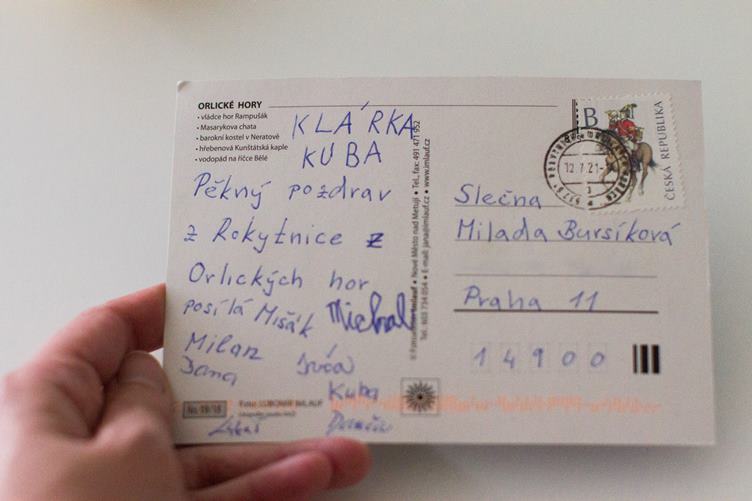 ORLICKÉ HORY
• vládce hor Rampušák
• Masarykova chata
• barokní kostel v Neratově
• hřebenová Kunštátská kaple
• vodopád na říčce Bělé
KLÁRKA
KUBA
Pěkný pozdrav
z Rokytnice z
Orlických hor
posílá Mišák Michal
Milan
Jana
Kuba
Lukáš
No. 19/18
Foto: LUBOMÍR IMLAUF
Nové Město nad Metují • Tel., fax: 491 471 952
Tel. 603 734 054 • E-mail: jana@imlauf.cz • www.imlauf.cz
B
ČESKÁ REPUBLIKA
12.7.21
Slečna
Milada Bursíková
Praha 11
14900